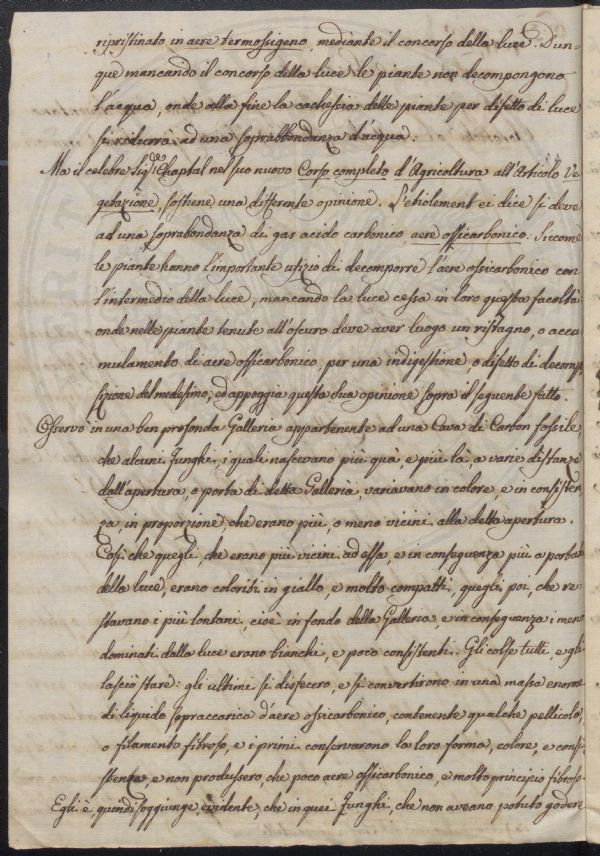 ripristinato in aere termossigeno, mediante il concorso della luce. Dun=
que mancando il concorso della luce le piante non decompongono
l'acqua, onde alla fine la cachessia delle piante per difetto di luce
si ridurrà ad una soprabbondanza d'acqua.
Ma il celebre Sig.r Chaptal nel suo nuovo Corso completo d'Agricoltura all'Articolo Ve
getazione, sostiene una differente opinione. L'etiolement ei dice si deve
ad una soprabondanza di gas acido carbonico aere ossicarbonico: Siccome
le piante hanno l'importante ufizio di decomporre l'aere ossicarbonico con
l'intermedio della luce, mancando la luce cessa in loro questa facoltà
onde nelle piante tenute all'oscuro deve aver luogo un ristagno, o accu
mulamento di aere ossicarbonico, per una indigestione, o difetto di decompo
sizione del medesimo; ed appoggia questa sua opinione sopra il seguente fatto.
Osservò in una ben profonda Galleria appartenente ad una Cava di Carbon fossile,
che alcuni funghi, i quali nascevano più quà, e più là, a varie distanze
dall'apertura, o porta di detta Galleria, variavano in colore, e in consisten
za in proporzione, che erano più, o meno vicini alla detta apertura.
Così che quegli, che erano più vicini ad essa, e in conseguenza più a portata
della luce, erano coloriti in giallo, e molto compatti, quegli poi, che re=
stavano i più lontani, cioè in fondo della Galleria, e in conseguenza i meno
dominati dalla luce erano bianchi, e poco consistenti. Gli colse tutti, e gli
lasciò stare: gli ultimi si disfecero, e si convertirono in una massa enorme
di liquido sopraccarica d'aere ossicarbonico, contenente qualche pellicola,
o filamento fibroso, e i primi conservarono la loro forma, colore, e consi
stenza e non produssero, che poco aere ossicarbonico, e molto principio fibroso.
Egli è, quindi soggiunge evidente, che in quei funghi, che non aveano potuto godere